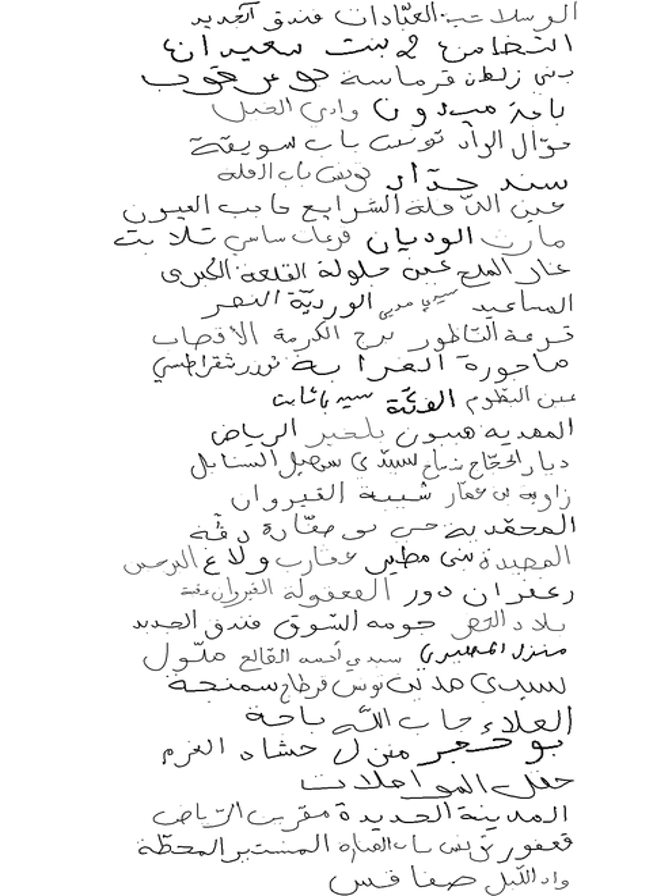 الوسلاتية العبّادات فندق الجديد
النخامن 2 بنت سعيدان
بني زلطن قرماسة بو عرقوب
باجة ميدون وادي الخيل
جوّال الواد تونس باب سويقة
سند حدّاد تونس باب القلة
عين النّحلة الشرايع حاجب العيون
مارث الوديان فرعات ساسي تلابت
غار الملح عين جلولة القلعة الكبرى
المساعيد سيدي مدين الورديّة النصر
ترعة النّاظور برج الكرمة الأقصاب
ماجورة الغرابة توزر شقراطسي
عين البطوم سيدي ثابت
المهدية هيبون بلخير الرياض
ديار الحجّاج سيدي سهيل السنابل
زاوية بن عمّار شبيبة القيروان
المحمّدية بو صفّارة دقّة
المصيدة بني مطير عقارب ولاغ النرجس
زعفران دور المعقولة القيروان
بلاد حومة السّوق فندق الجديد
منزل سيدي القالع ملّول
سيدي مدين تونس قرطاج سمنجة
العلاء جاب اللّه باجة
بو حجر منزل حشاد العزم
حفل المواصلات
المدينة الجديدة مقرين الرّياض
قعفور تونس باب المنستير المحطّة
واد اللّيل صفاقس